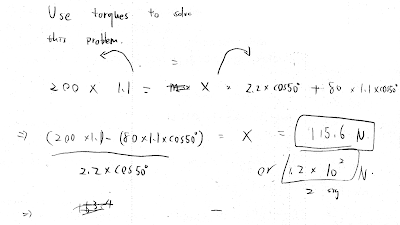 Use torques to solve
this problem.
=
200 × 1.1 = X × 2.2 × cos50° + 80 × 1.1 × cos50°
⇒ (200 × 1.1 - (80 × 1.1 × cos50°) / 2.2 × cos50° = X = 115.6 N.
or 1.2 × 10² N.
2 sig
⇒ -